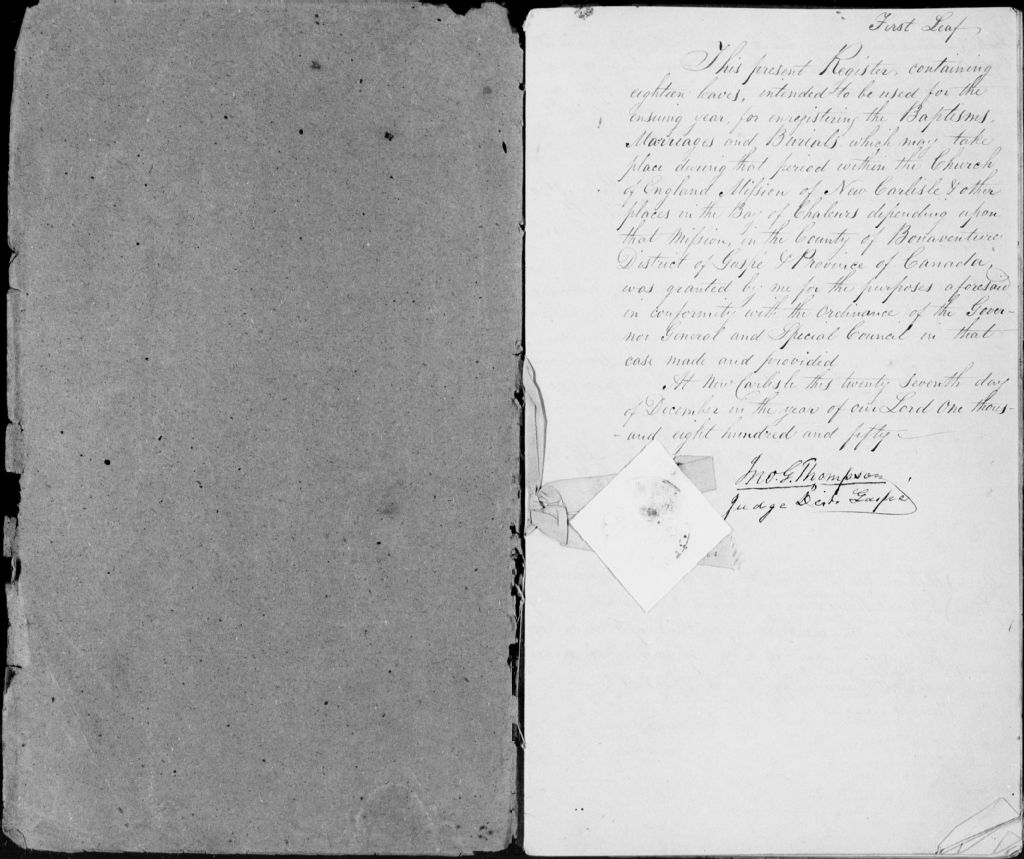 First Leaf
This present Register, containing
eighteen leaves, intended to be used for the
ensuing year, for enregistering the Baptisms,
Marriages and Burials which may take
place during that period within the Church
of England Mission of New Carlisle & other
places in the Bay of Chaleurs depending upon
that Mission, in the County of Bonaventure
District of Gaspé & Province of Canada,
was granted by me for the purposes aforesaid
in conformity with the Ordinance of the Gover-
nor General and Special Council in that
case made and provided
At New Carlisle this twenty seventh day
of December in the year of our Lord One thous-
-and eight hundred and fifty.
Jno. G. Thompson
Judge Dist. Gaspé